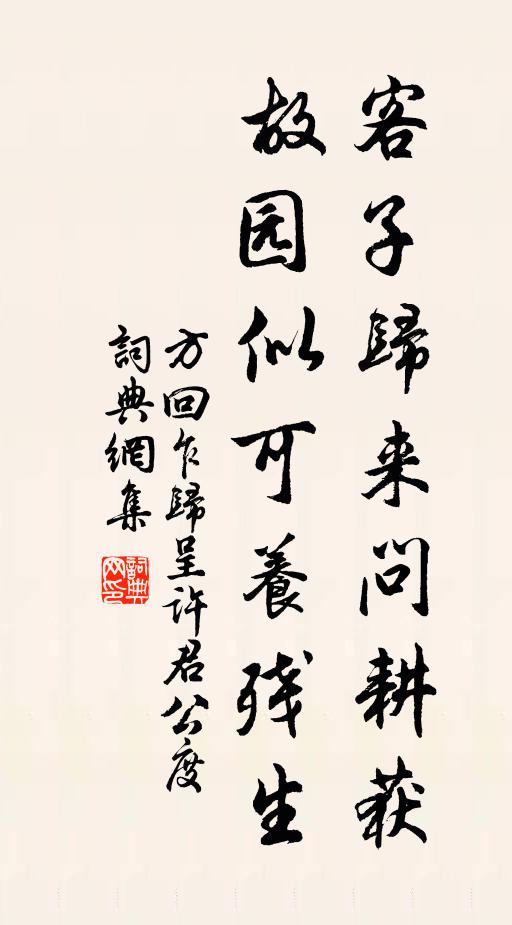 客子歸来问耕获
故园似可養残生
方回乍歸呈许君公度
詞典網集
詞典网印